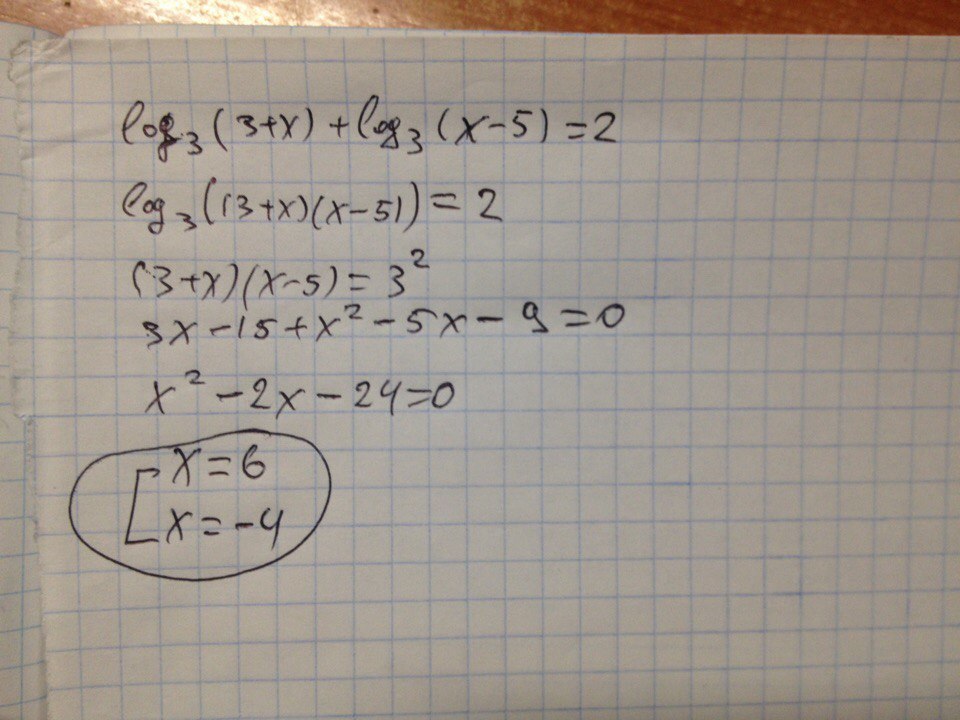 log₃(3+x)+log₃(x-5)=2
log₃((3+x)(x-5))=2
(3+x)(x-5)=3²
3x-15+x²-5x-9=0
x²-2x-24=0
[x=6
x=-4